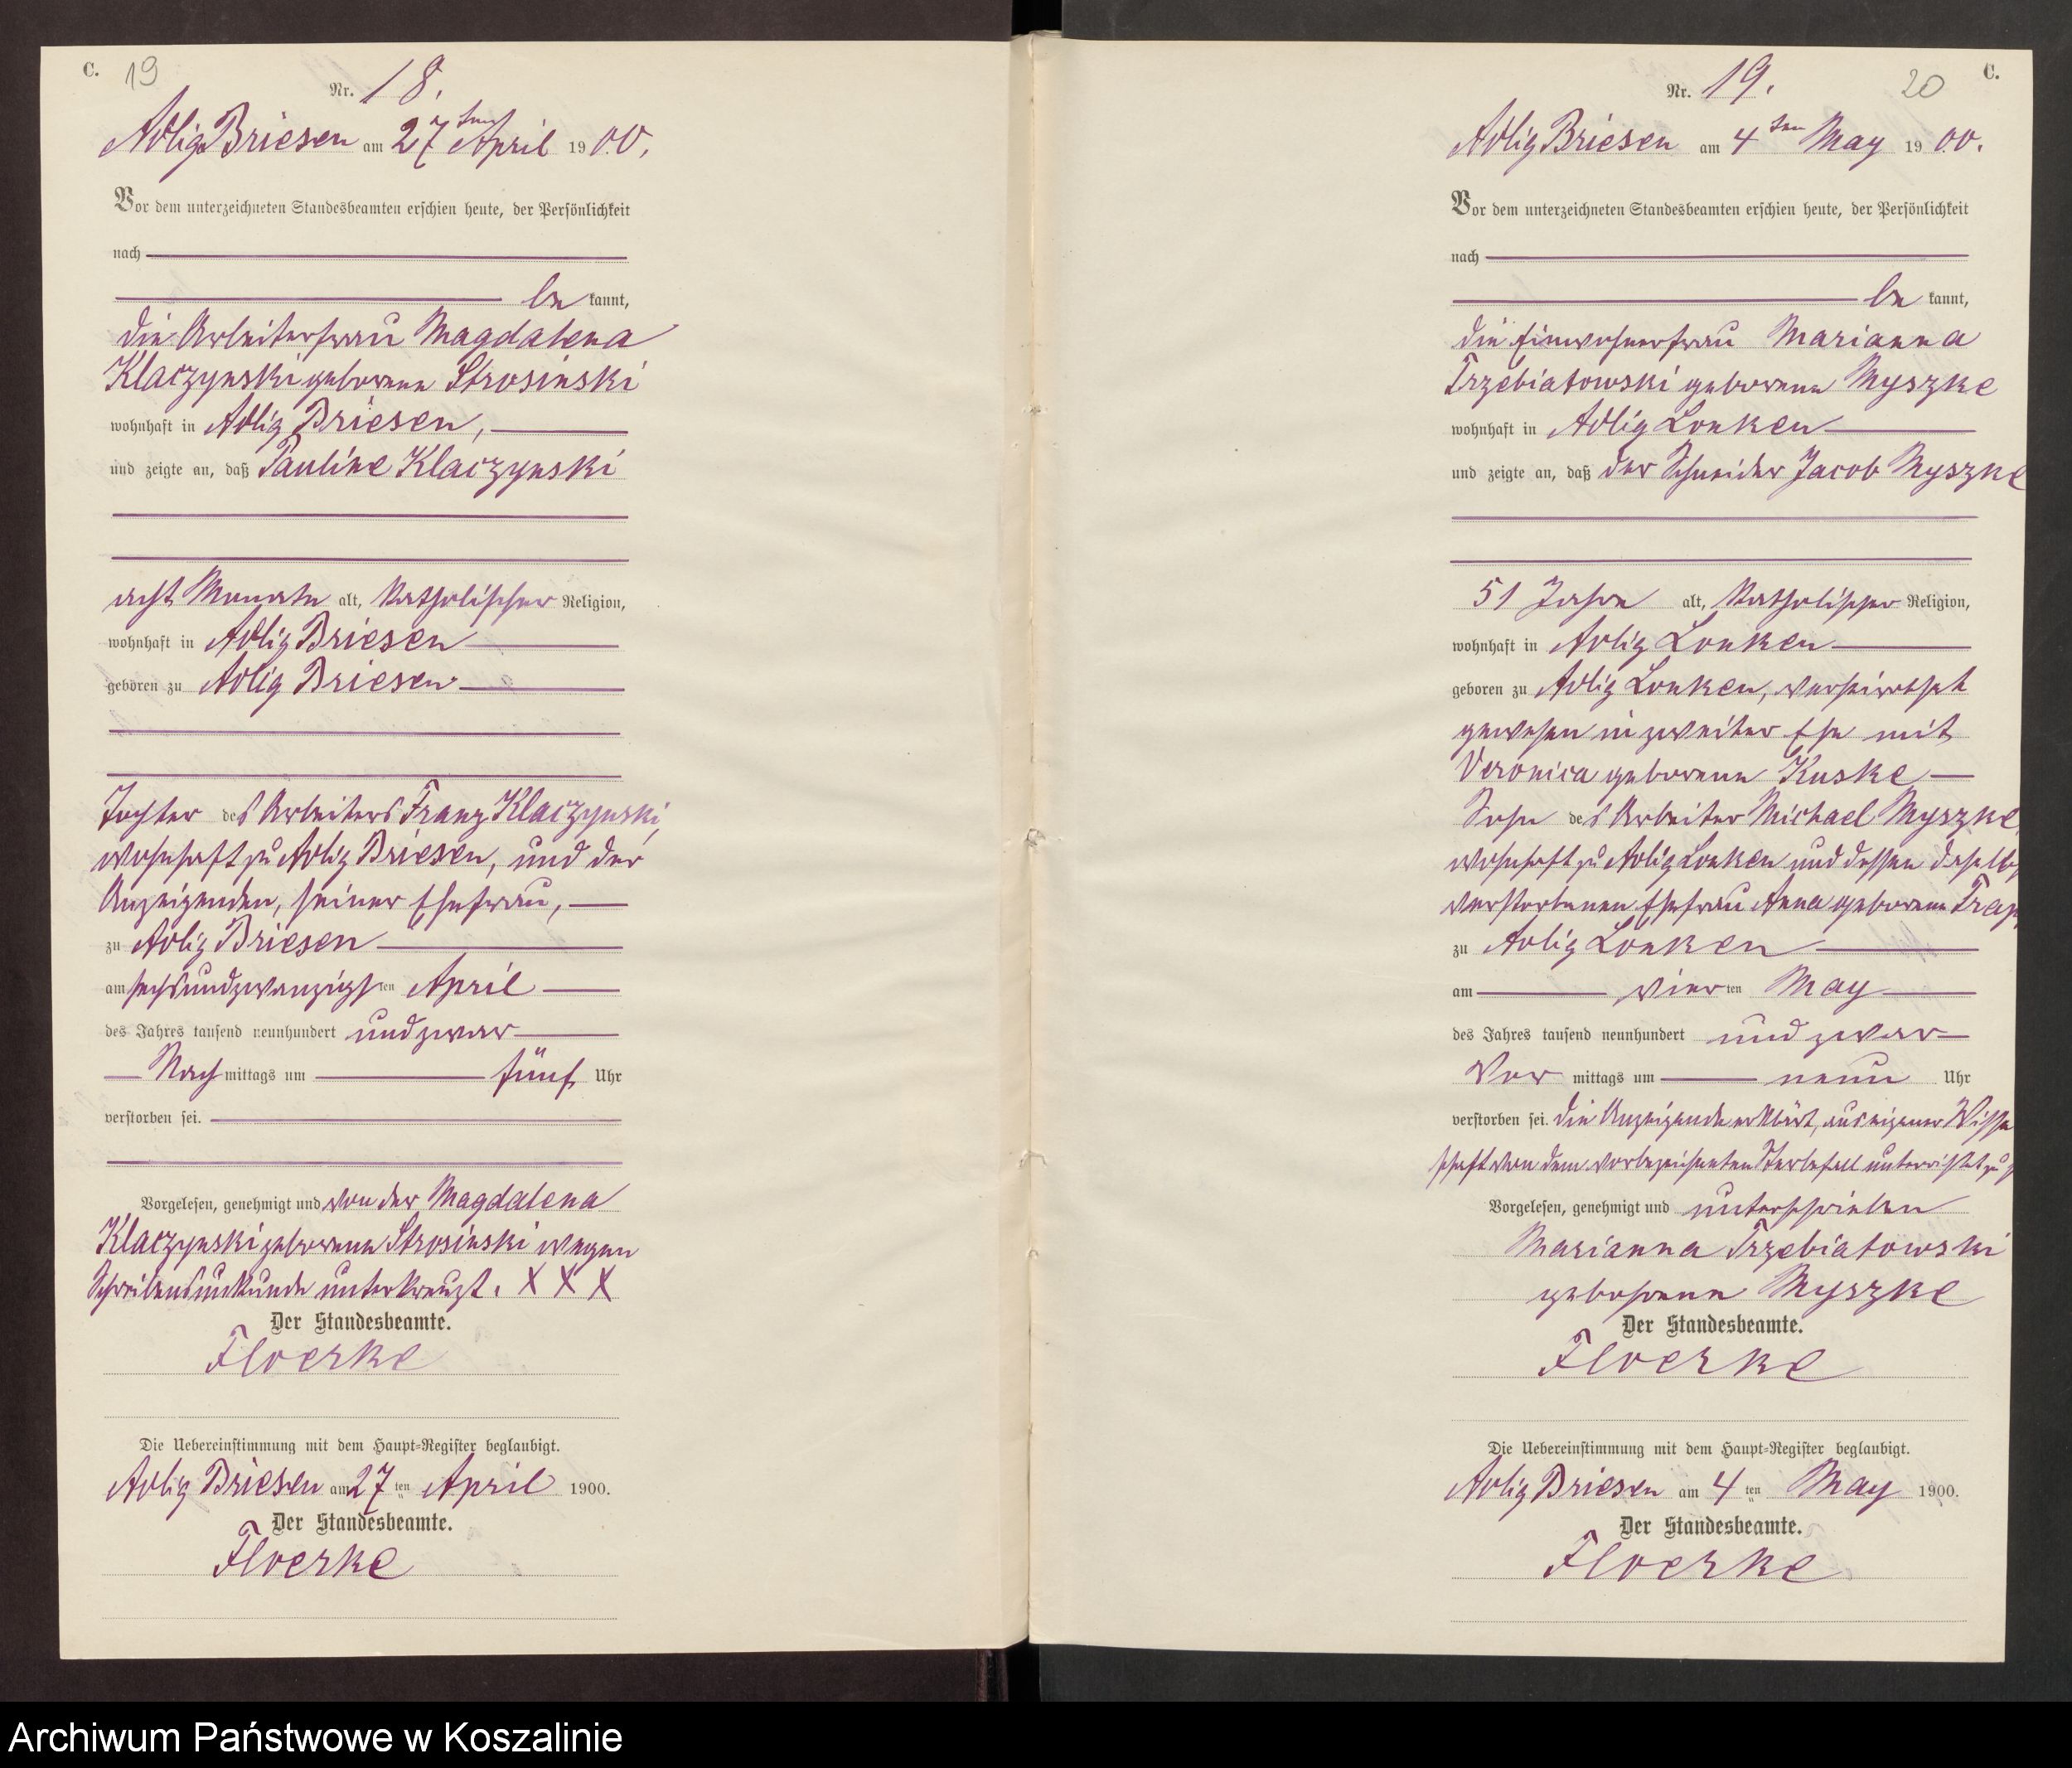 C. 19
Nr. 18.
Adlig Briesen am 27ten April 1900.
Vor dem unterzeichneten Standesbeamten erschien heute, der Persönlichkeit
nach
be kannt,
die Arbeiterfrau Magdalena
Klaczynski geborene Strosinski
wohnhaft in Adlig Briesen,
und zeigte an, daß Pauline Klaczynski
acht Monate alt, katholischer Religion,
wohnhaft in Adlig Briesen
geboren zu Adlig Briesen
Tochter des Arbeiters Franz Klaczynski,
wohnhaft zu Adlig Briesen, und der
Anzeigenden, seiner Ehefrau,
zu Adlig Briesen
am sechsundzwanzigsten April
des Jahres tausend neunhundert und zwar
Nach mittags um fünf Uhr
verstorben sei.
Vorgelesen, genehmigt und von der Magdalena
Klaczynski geborene Strosinski wegen
Schreibensunkunde unterkreuzt. X X X
Der Standesbeamte.
Floerke
Die Uebereinstimmung mit dem Haupt-Register beglaubigt.
Adlig Briesen am 27ten April 1900.
Der Standesbeamte.
Floerke
20 C.
Nr. 19.
Adlig Briesen am 4ten May 1900.
Vor dem unterzeichneten Standesbeamten erschien heute, der Persönlichkeit
nach
be kannt,
die Einwohnerfrau Marianna
Trzebiatowski geborene Myszke
wohnhaft in Adlig Lonken
und zeigte an, daß der Schneider Jacob Myszke
51 Jahre alt, katholischer Religion,
wohnhaft in Adlig Lonken
geboren zu Adlig Lonken, verheirathet
gewesen in zweiter Ehe mit
Veronica geborene Kuske
Sohn des Arbeiter Michael Myszke,
wohnhaft zu Adlig Lonken und dessen daselbst
verstorbenen Ehefrau Anna geborene
zu Adlig Lonken
am vierten May
des Jahres tausend neunhundert und zwar
Vor mittags um neun Uhr
verstorben sei. Die Anzeigende erklärt, aus eigener Wissen
schaft von dem vorbezeichneten Sterbefall unterrichtet zu
Vorgelesen, genehmigt und unterschrieben
Marianna Trzebiatowski
geborene Myszke
Der Standesbeamte.
Floerke
Die Uebereinstimmung mit dem Haupt-Register beglaubigt.
Adlig Briesen am 4ten May 1900.
Der Standesbeamte.
Floerke
Archiwum Państwowe w Koszalinie